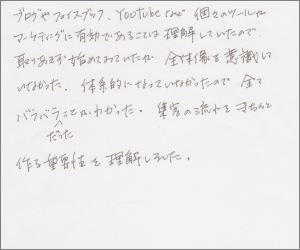 ブログやフェイスブック、YouTubeなど 個々のツールが
マーケティングに有効であることは理解していたので、
取りあえず始めてまっていたが 全体像を意識して
いなかった。体系的になっていなかったので 全て
バラバラだったことがわかった。集客の流れをきちんと
作る重要性を理解しました。